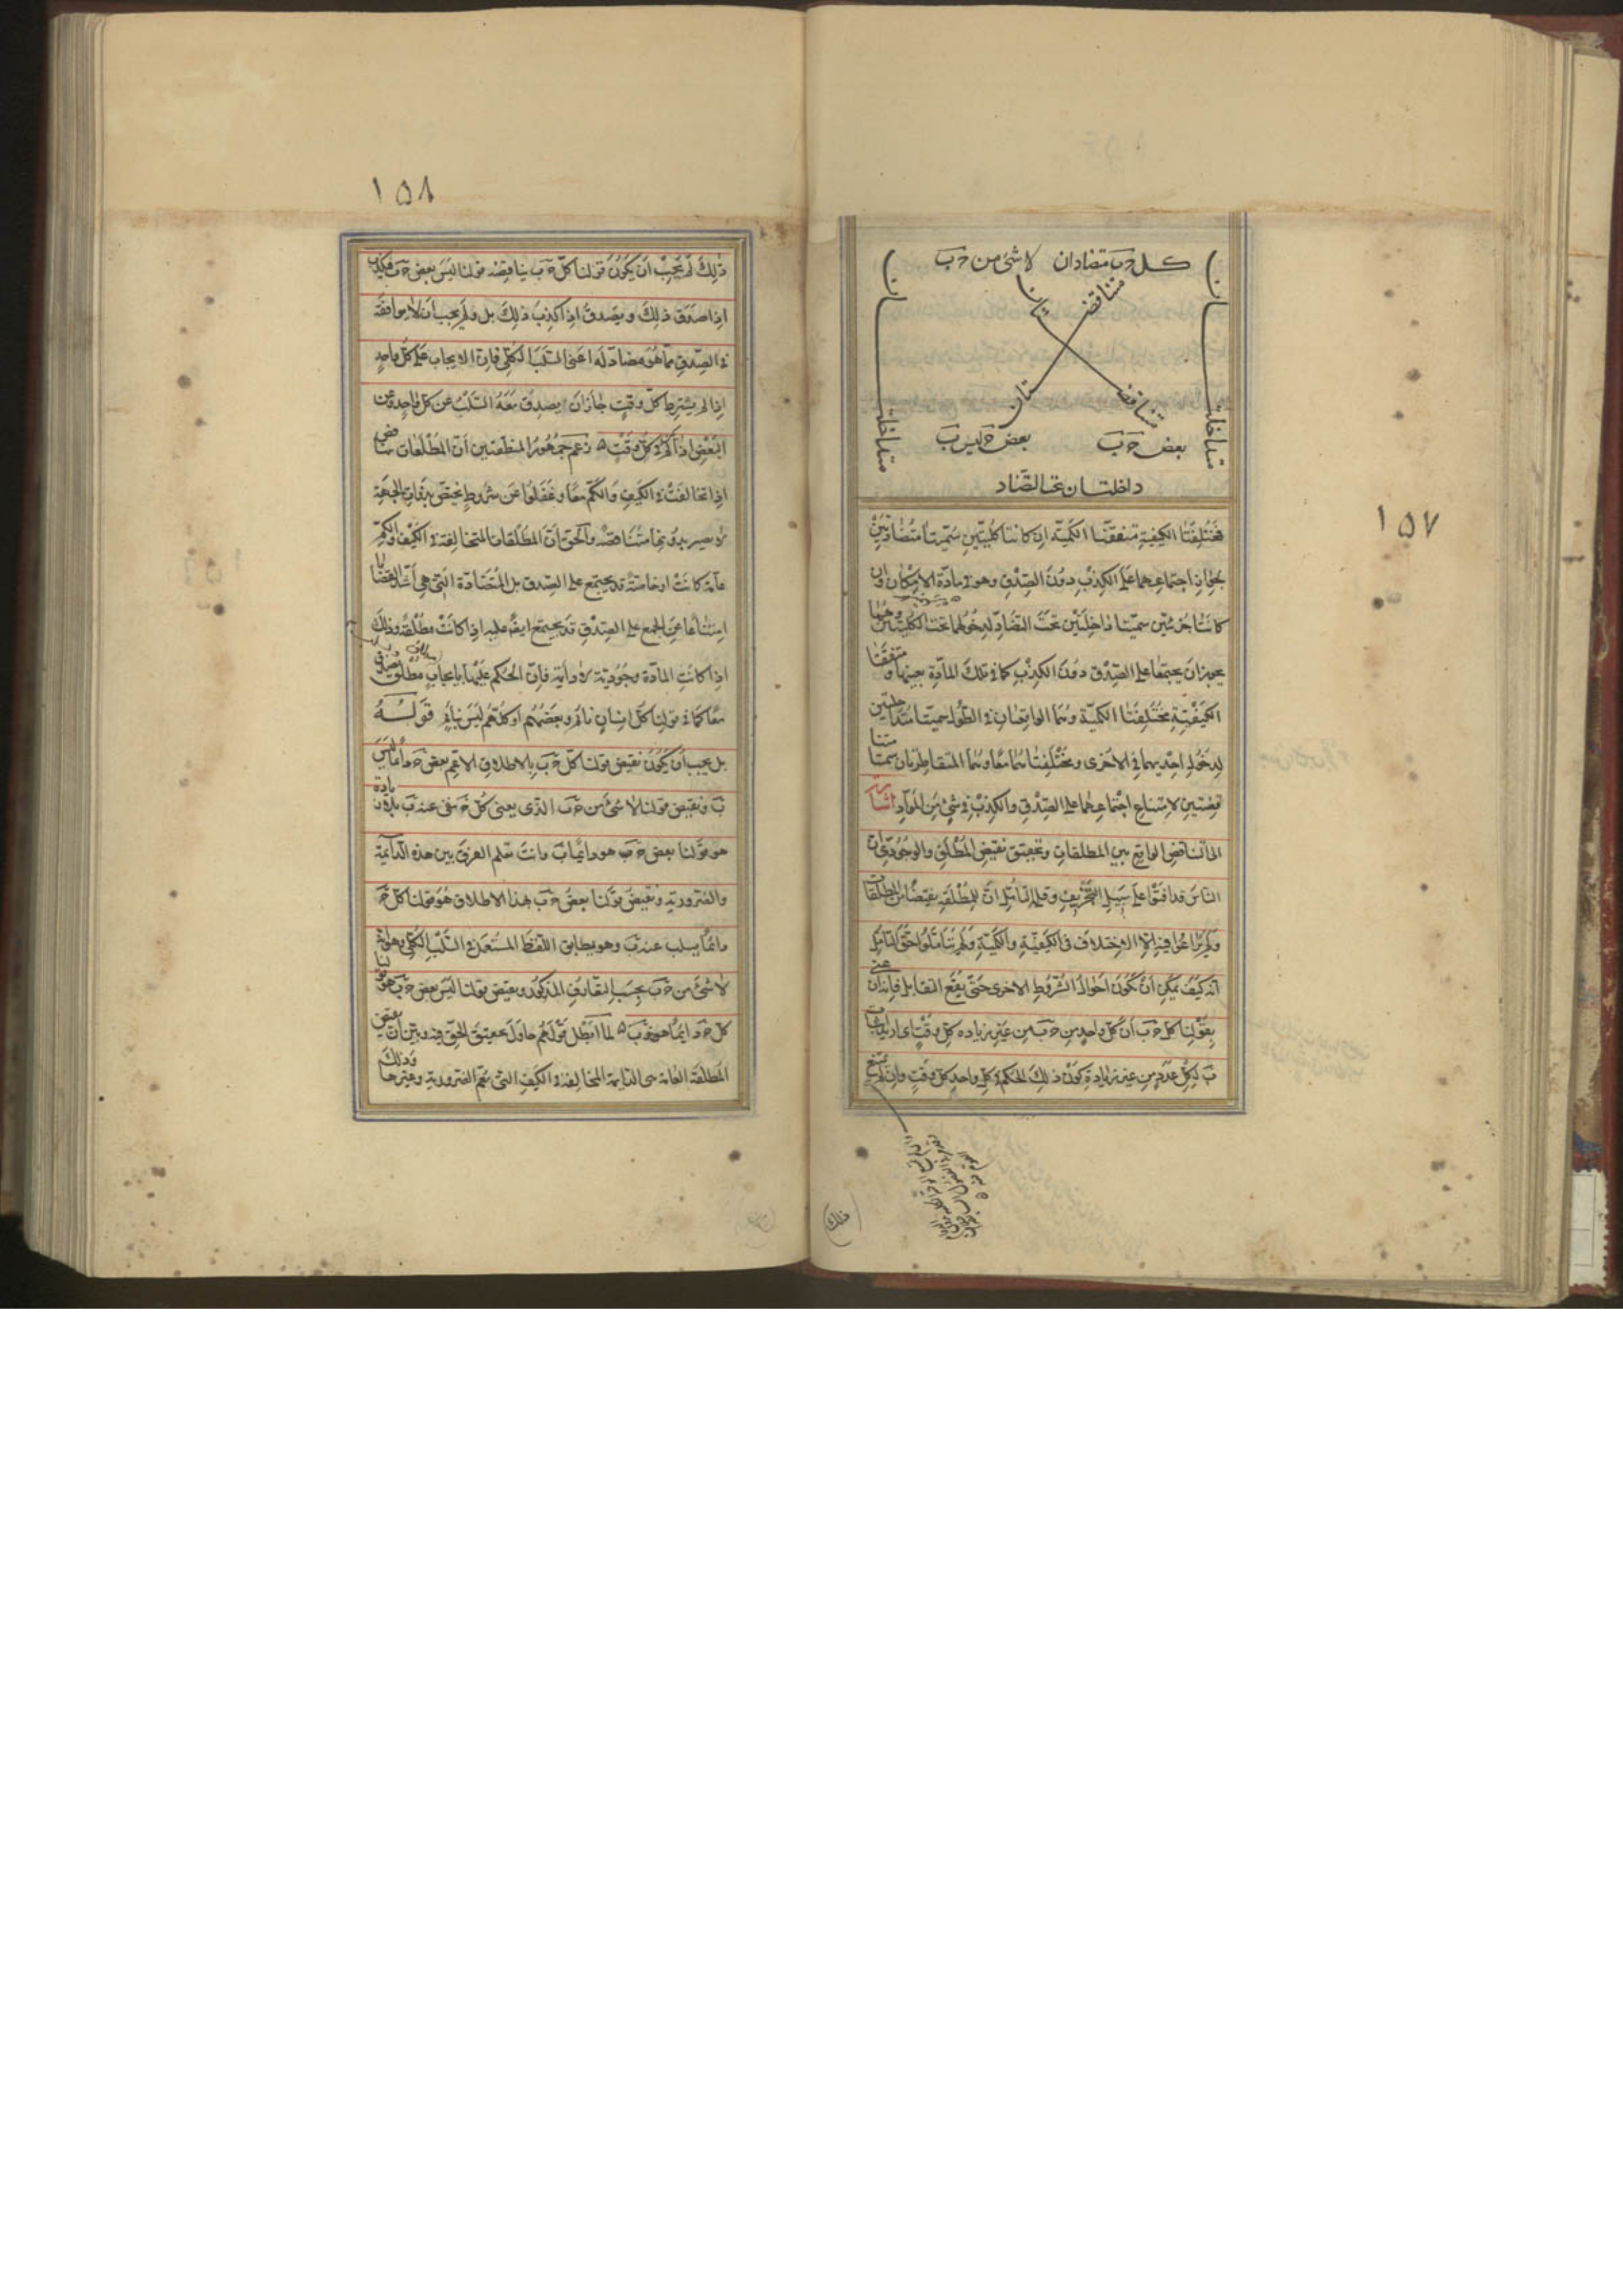 ١٥٧
كل جَ بَ متضادان لا شئ من جَ بَ
متناقضـ
ـتان
متناقضـ
ـتان
متداخلتـ
ـان
متداخلتـ
ـان
بعض جَ بَ
بعض جَ ليس بَ
داخلتان تحت التضاد
فمختلفتا الكيفية متفقتا الكمية ان كانتا كليتين سميتا متضادتين
لجواز اجتماعهما على الكذب دون الصدق وهو فى مادة الامكان وان
كانتا جزئيتين سميتا داخلتين تحت التضاد لدخولهما تحت الكليتين وهما
يجوز ان يجتمعا على الصدق دون الكذب كما فى تلك المادة بعينها ومتفقتا
الكيفية مختلفتا الكمية وهما الواقعتان فى الطول سميتا متداخلتين
لدخول احديهما فى الاخرى ومختلفتاهما معا وهما المتقاطرتان سميتا متنا
قضتين لامتناع اجتماعهما على الصدق والكذب فى شئ من المواد اشارة
الى التناقض الواقع بين المطلقات وتحقيق نقيض المطلق والوجودى ان
الناس قد افتوا على سبيل التحريف وقلة التأمل ان للمطلقة نقيضا من المطلقات
ولم يراعوا فيه الا الاختلاف فى الكيفية والكمية ولم يتأملوا حق التامل
انه كيف يمكن ان تكون احوال الشروط الاخرى حتى يقع التقابل فانه اذا عنى
بقولنا كل جَ بَ ان كل واحد من جَ بَ من غير زيادة كل وقت اى اريد اثبات
بَ لكل عدد من غير زيادة كون ذلك الحكم فى كل واحد كل وقت وان لم يمنع
ذلك
١٥٨
ذلك لم يجب ان يكون قولنا كل جَ بَ يناقضه قولنا ليس بعض جَ بَ فيكذب
اذا صدق ذلك ويصدق اذا كذب ذلك بل ولم يجب ان لا يوافقه
فى الصدق ما هو مضاد له اعنى السلب الكلى فان الايجاب على كل واحد
اذا لم يشترط كل وقت جاز ان يصدق معه السلب عن كل واحد وعن
البعض اذا لم فى كل وقت ه زعم جمهور المنطقيين ان المطلقات تتناقض
اذا تخالفت فى الكيف والكم معا وغفلوا عن شروط يختص بذوات الجهة
لا يصير بدونها متناقضة والحق ان المطلقات المتخالفة فى الكيف والكم
عامة كانت او خاصة قد يجتمع على الصدق بل المتضادة التى هى اشد القضايا
امتناعا عن الجمع على الصدق قد يجتمع ايضا عليه اذا كانت مطلقة وذلك
اذا كانت المادة وجودية لا دايمة فان الحكم عليها بايجاب مطلق وسلب
معا كما فى قولنا كل انسان نايم وبعضهم او كلهم ليس نايم قوله
بل يجب ان يكون نقيض قولنا كل جَ بَ بالاطلاق الاعم بعض جَ دايما ليس
بَ ونقيض قولنا لا شئ من جَ بَ الذى يعنى كل جَ ينفى عنه بَ بلا زيادة
هو قولنا بعض جَ بَ هو دايما بَ وانت تعلم الفرق بين هذه الدايمة
والضرورية ونقيض قولنا بعض جَ بَ بهذا الاطلاق هو قولنا كل جَ
دائما يسلب عنه بَ وهو يطابق اللفظ المستعمل فى السلب الكلى وهو انه
لا شئ من جَ بَ بحسب التعارف المذكور ونقيض قولنا ليس بعض جَ بَ هو قولنا
كل جَ دايما هو بَ ه لما ابطل قولهم حاول تحقيق الحق فيه وبين ان نقيض
المطلقة العامة هى الدايمة المخالفة فى الكيف التى تعم الضرورية وغيرها وذلك